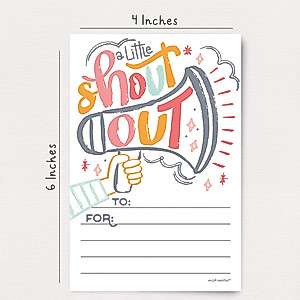 4 Inches
6 Inches
a Little
shout
OUT
TO:
FOR: